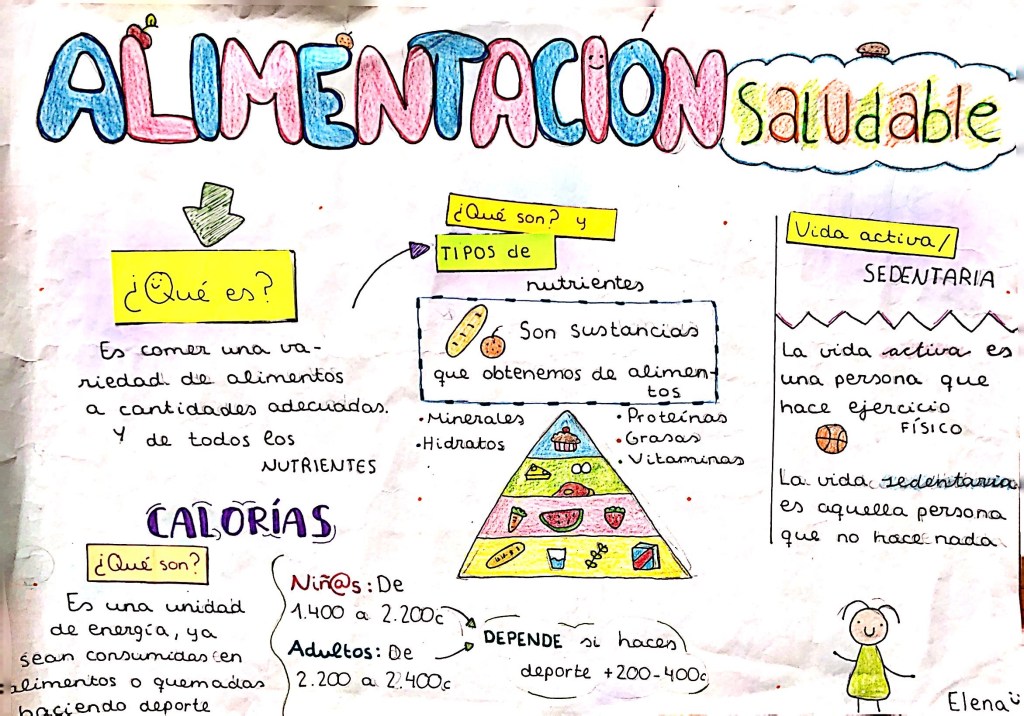 ALIMENTACIÓN Saludable
¿Qué es?
Es comer una va-
riedad de alimentos
a cantidades adecuadas.
Y de todos los
NUTRIENTES
¿Qué son? y
TIPOS de
nutrientes
Son sustancias
que obtenemos de alimen-
tos
• Minerales
• Hidratos
• Proteínas
• Grasas
• Vitaminas
Vida activa/
SEDENTARIA
La vida activa es
una persona que
hace ejercicio
FÍSICO
La vida sedentaria
es aquella persona
que no hace nada
CALORÍAS
¿Qué son?
Es una unidad
de energía, ya
sean consumidas en
alimentos o quemadas
haciendo deporte
Niñ@s: De
1.400 a 2.200c
Adultos: De
2.200 a 2.400c
DEPENDE si haces
deporte +200-400c
Elena